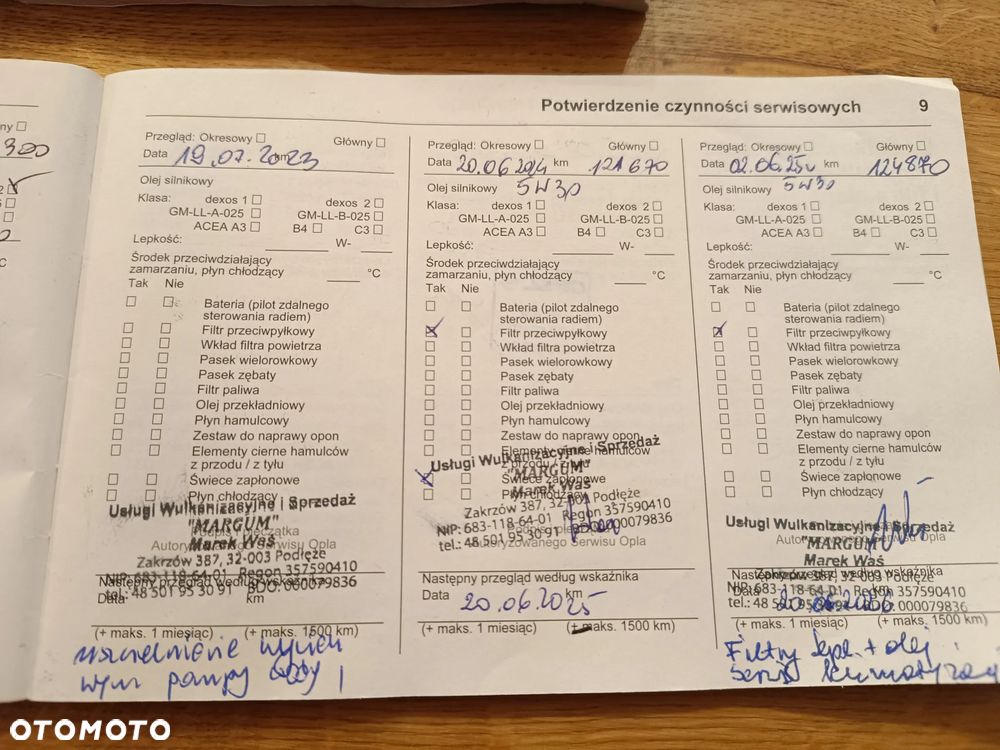 Potwierdzenie czynności serwisowych 9
ny
300
2
Przegląd: Okresowy Główny
Data 19.07.2023
Olej silnikowy
Klasa: dexos 1 dexos 2
GM-LL-A-025 GM-LL-B-025
ACEA A3 B4 C3
Lepkość: W-
Środek przeciwdziałający
zamarzaniu, płyn chłodzący °C
Tak Nie
Bateria (pilot zdalnego
sterowania radiem)
Filtr przeciwpyłkowy
Wkład filtra powietrza
Pasek wielorowkowy
Pasek zębaty
Filtr paliwa
Olej przekładniowy
Płyn hamulcowy
Zestaw do naprawy opon
Elementy cierne hamulców
z przodu / z tyłu
Świece zapłonowe
Płyn chłodzący
Usługi Wulkanizacyjne i Sprzedaż
"MARGUM"
Marek Waś
Autoryzowanego Serwisu Opla
Zakrzów 387, 32-003 Podłęże
NIP: 683-118-64-01 Regon 357590410
tel.: 48 501 95 30 91 BDO: 000079836
Następny przegląd według wskaźnika
Data km
(+ maks. 1 miesiąc) (+ maks. 1500 km)
wym pompy wody
Przegląd: Okresowy Główny
Data 20.06.2024 km 121670
Olej silnikowy 5W30
Klasa: dexos 1 dexos 2
GM-LL-A-025 GM-LL-B-025
ACEA A3 B4 C3
Lepkość: W-
Środek przeciwdziałający
zamarzaniu, płyn chłodzący °C
Tak Nie
Bateria (pilot zdalnego
sterowania radiem)
Filtr przeciwpyłkowy
Wkład filtra powietrza
Pasek wielorowkowy
Pasek zębaty
Filtr paliwa
Olej przekładniowy
Płyn hamulcowy
Zestaw do naprawy opon
Elementy cierne hamulców
z przodu / z tyłu
Świece zapłonowe
Płyn chłodzący
Usługi Wulkanizacyjne i Sprzedaż
"MARGUM"
Marek Waś
Zakrzów 387, 32-003 Podłęże
NIP: 683-118-64-01 Regon 357590410
tel.: 48 501 95 30 91 BDO: 000079836
Autoryzowanego Serwisu Opla
Następny przegląd według wskaźnika
Data 20.06.2025 km
(+ maks. 1 miesiąc) (+ maks. 1500 km)
Przegląd: Okresowy Główny
Data 02.06.25 km 124870
Olej silnikowy 5W30
Klasa: dexos 1 dexos 2
GM-LL-A-025 GM-LL-B-025
ACEA A3 B4 C3
Lepkość: W-
Środek przeciwdziałający
zamarzaniu, płyn chłodzący °C
Tak Nie
Bateria (pilot zdalnego
sterowania radiem)
Filtr przeciwpyłkowy
Wkład filtra powietrza
Pasek wielorowkowy
Pasek zębaty
Filtr paliwa
Olej przekładniowy
Płyn hamulcowy
Zestaw do naprawy opon
Elementy cierne hamulców
z przodu / z tyłu
Świece zapłonowe
Płyn chłodzący
Usługi Wulkanizacyjne i Sprzedaż
"MARGUM"
Autoryzowanego Serwisu Opla
Marek Waś
Zakrzów 387, 32-003 Podłęże
NIP: 683-118-64-01 Regon 357590410
tel.: 48 501 95 30 91 BDO: 000079836
Następny przegląd według wskaźnika
Data
(+ maks. 1 miesiąc) (+ maks. 1500 km)
Filtry kpl. + olej
serwis klimatyzacji
OTOMOTO